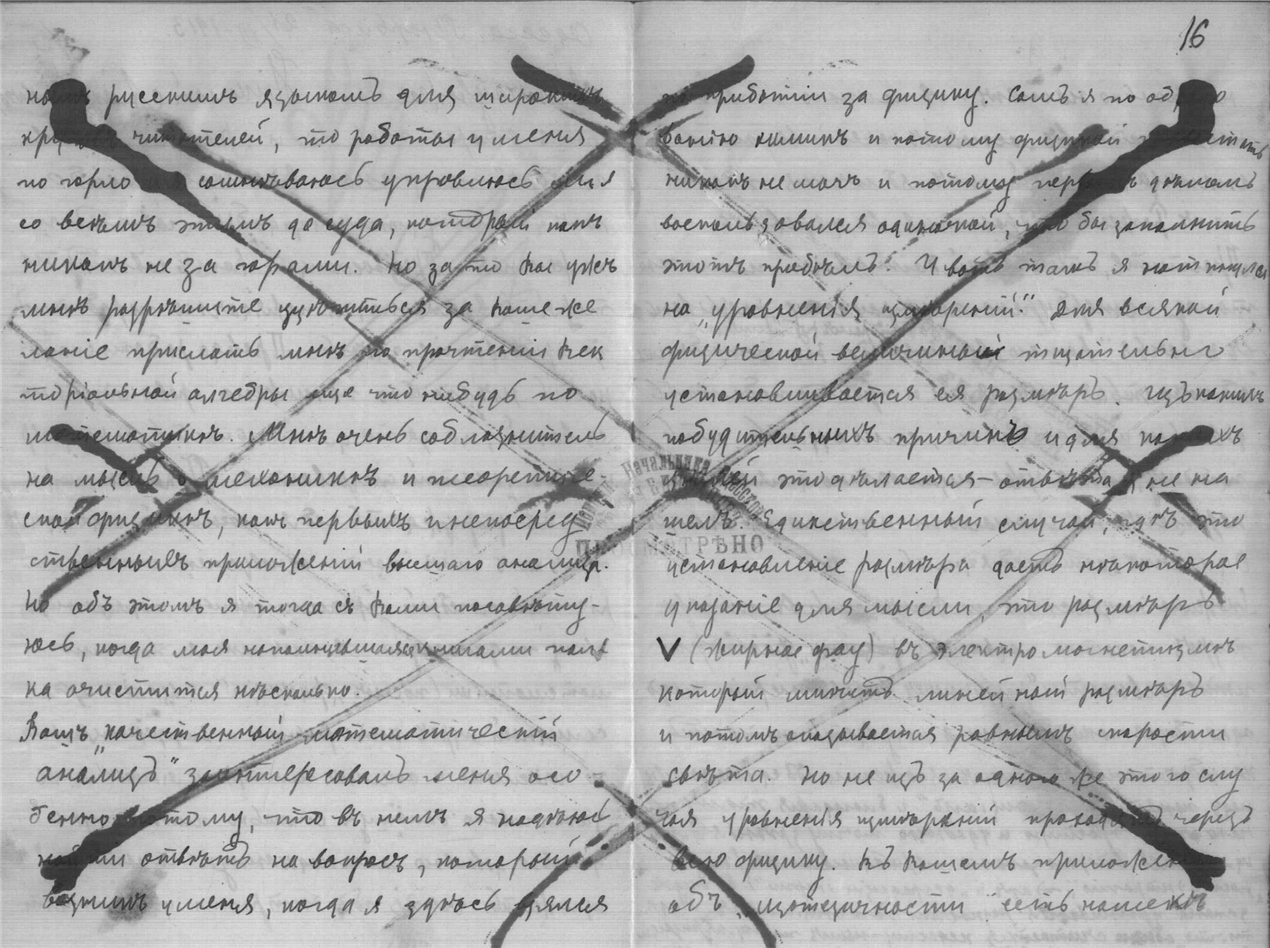 16
нымъ русскимъ языкомъ для широкихъ
круговъ читателей, то работы у меня
по горло и я сомнѣваюсь управлюсь ли я
со всѣмъ этимъ до суда, который какъ
никакъ не за горами. Но за то Вы ужъ
мнѣ разрѣшите уцѣпиться за Ваше же
ланіе прислать мнѣ по прочтеніи Век
торіальной алгебры еще что нибудь по
математикѣ. Мнѣ очень соблазнитель
на мысль о механикѣ и теоретиче-
ской физикѣ, какъ первыхъ и непосред
ственныхъ приложеній высшаго анализа.
Но объ этомъ я тогда съ Вами посовѣту-
юсь, когда моя накопившаяся книгами пол
ка очистится нѣсколько.
Вашъ „качественный математическій
анализъ" заинтересовалъ меня осо-
бенно потому, что въ немъ я надѣюсь
найти отвѣтъ на вопросъ, который
возникъ у меня, когда я здѣсь взялся
по прибытіи за физику. Самъ я по
химикъ и потому физикой
никакъ не могъ и потому первымъ дѣломъ
воспользовался одиночкой, что бы заполнить
этотъ пробѣлъ. И вотъ тамъ я наткнулся
на „уравненія измѣреній." Для всякой
физической величины тщательно
устанавливается ея размѣръ. Изъ какихъ
побудительныхъ причинъ и для какихъ
цѣлей это дѣлается – отвѣта я не на
шелъ. Единственный случай, гдѣ это
установленіе размѣра даетъ нѣкоторое
указаніе для мысли, это размѣръ
V (жирное фау) въ электромагнетизмѣ
который имѣетъ линейный размѣръ
и потомъ оказывается равнымъ скорости
свѣта. Но не изъ за одного же этого слу
чая уравненія измѣреній проходятъ черезъ
всю физику. Въ Вашемъ приложеніи
объ изотеричности есть намекъ
Начальника
ПРОСМОТРѢНО